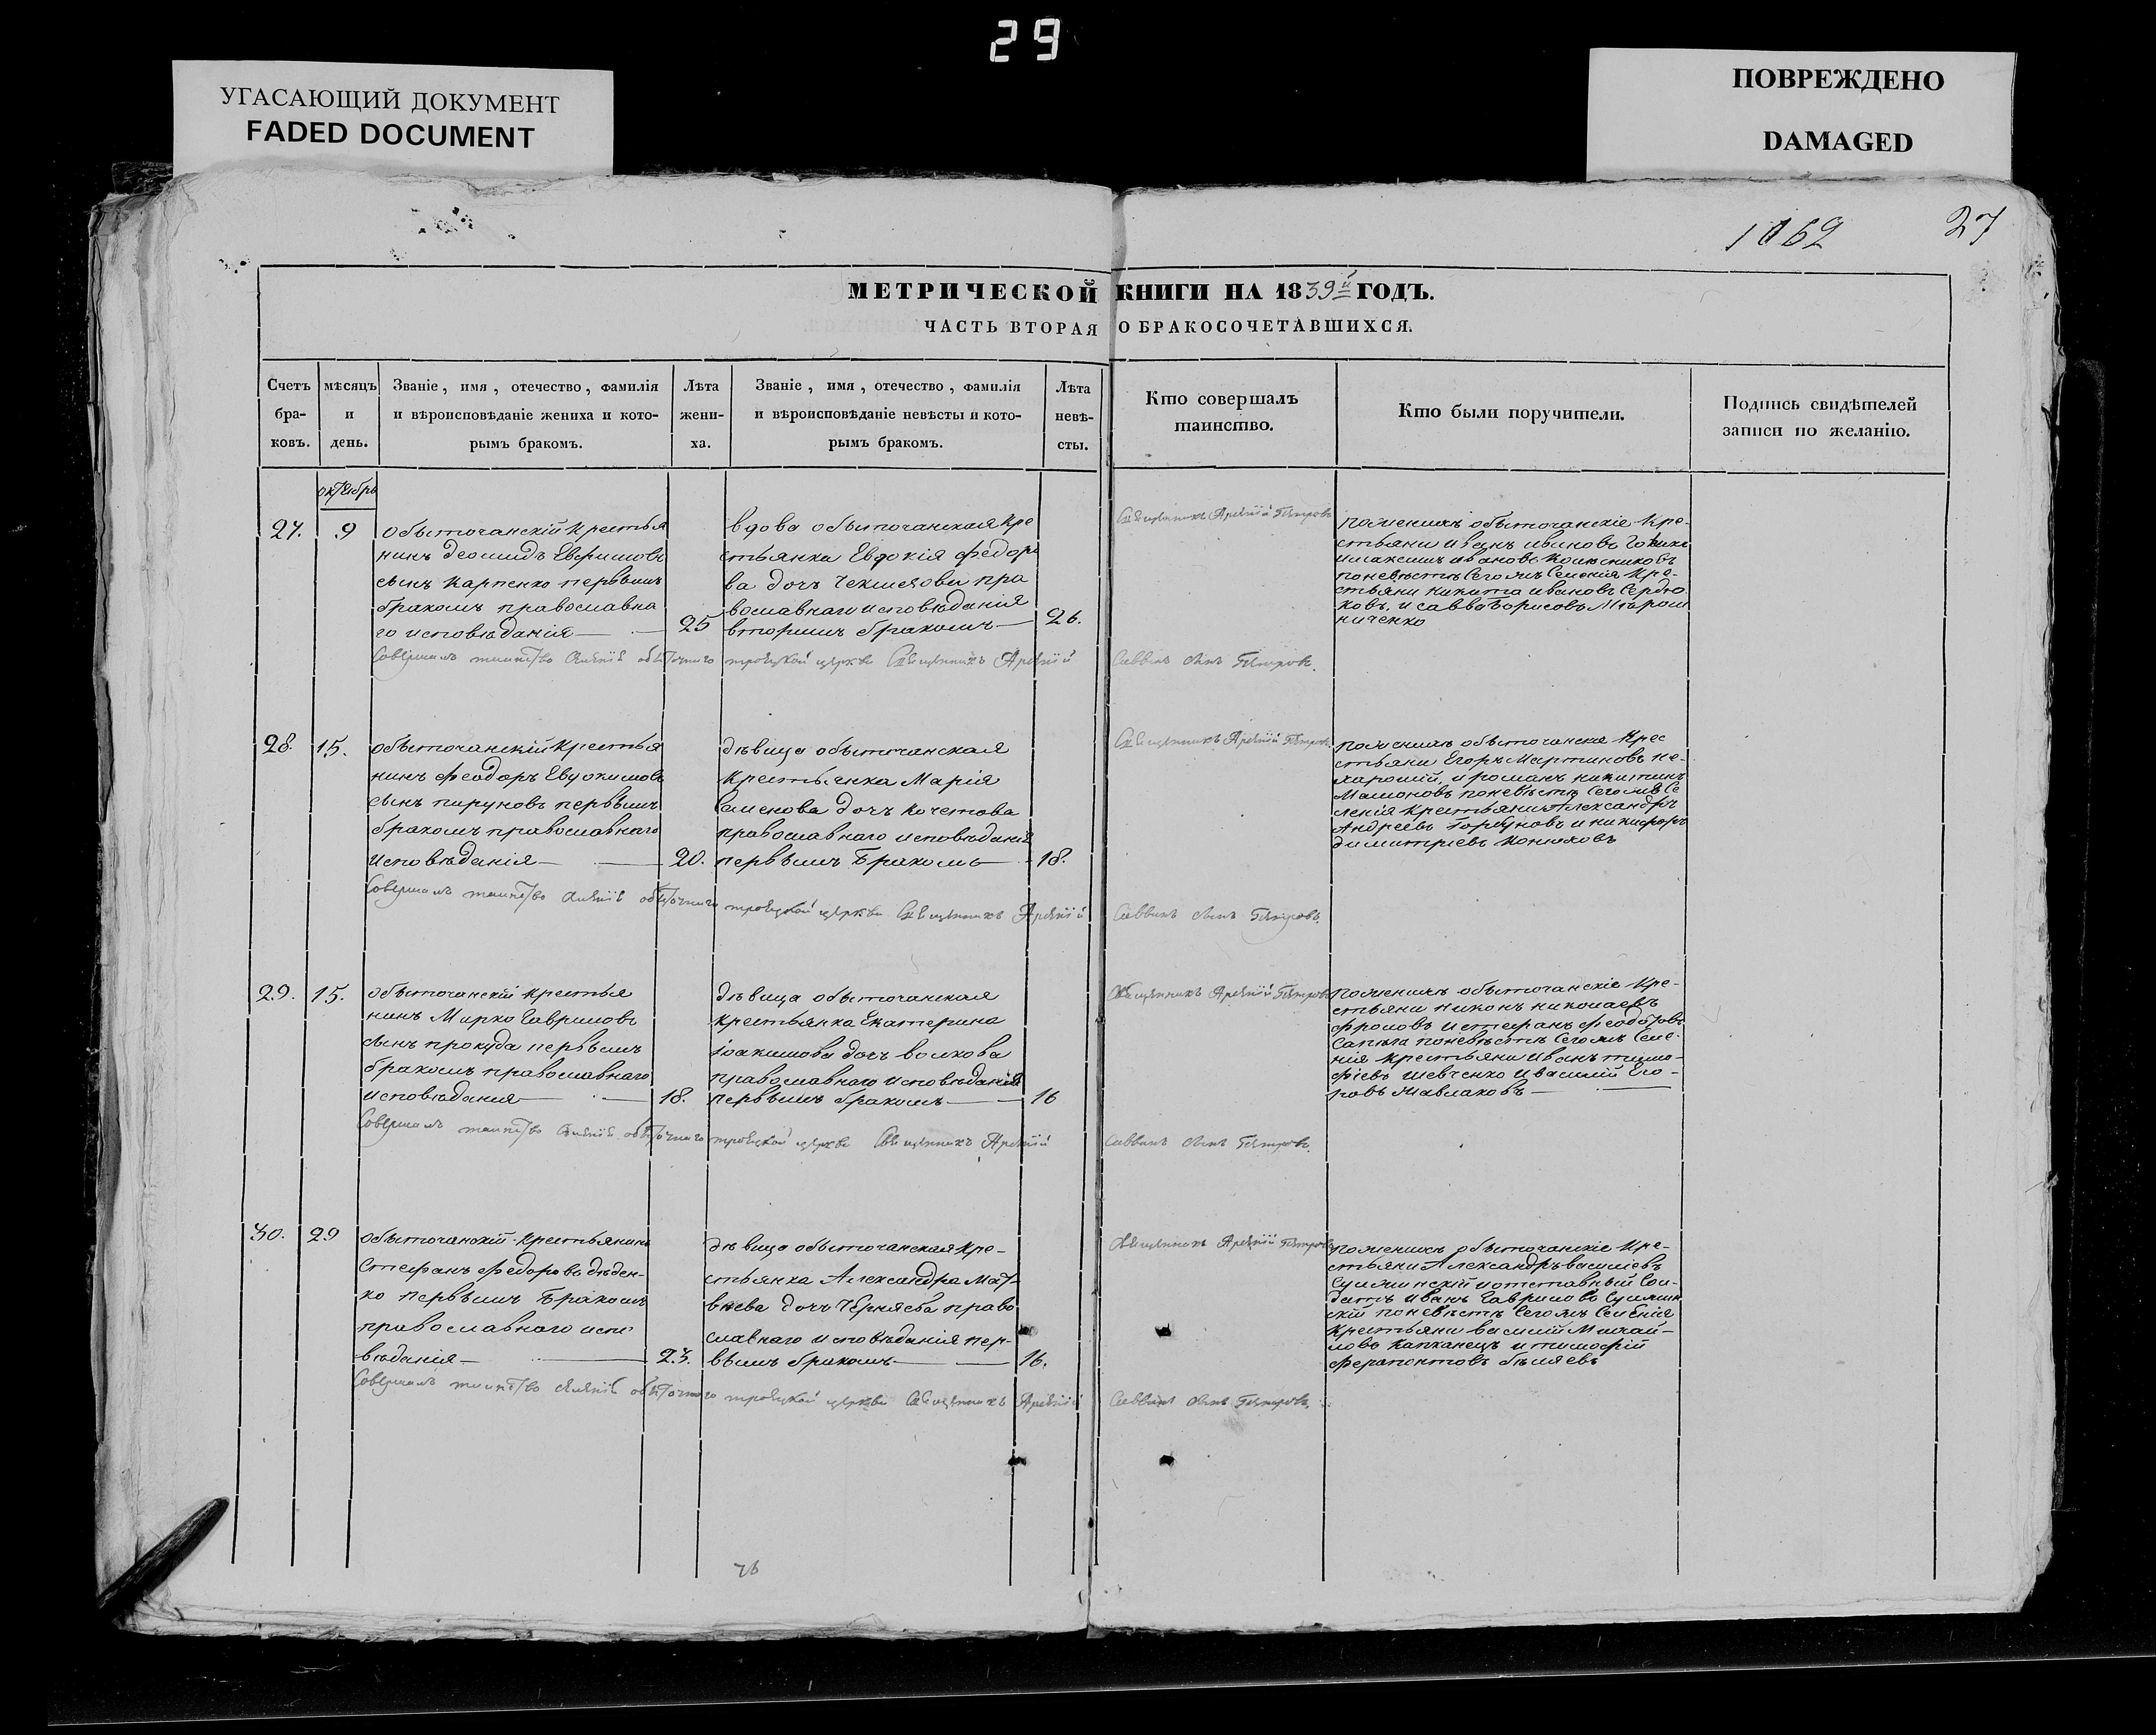 29
УГАСАЮЩИЙ ДОКУМЕНТ
FADED DOCUMENT
ПОВРЕЖДЕНО
DAMAGED
27
МЕТРИЧЕСКОЙ КНИГИ НА 1839й ГОДЪ.
ЧАСТЬ ВТОРАЯ О БРАКОСОЧЕТАВШИХСЯ.
Счетъ бра-ковъ.
мѣсяцъ и день.
Званіе, имя, отечество, фамилія
и вѣроисповѣданіе жениха и кото-
рымъ бракомъ.
Лѣта жени-ха.
Званіе, имя, отечество, фамилія
и вѣроисповѣданіе невѣсты и кото-
рымъ бракомъ.
Лѣта невѣ-сты.
Кто совершалъ
таинство.
Кто были поручители.
Подпись свидѣтелей
записи по желанію.
октябрь
27.
9
обыточанскій крестья
нинъ Евфимовъ
сынъ Карпенко первымъ
бракомъ православна
го исповѣданія
25
вдова обыточанская кре
стьянка Евдокія федоро
ва дочь пра
вославнаго исповѣданія
вторымъ бракомъ
26.
Священникъ Арсеній Петровъ
пожениха обыточанскіе кре-
стьяни иванъ ивановъ
имаксимъ ивановъ Колесниковъ
поневѣстѣ сегожъ селенія кре-
стьяни никита ивановъ Сердю
ковъ, и савва борисовъ Мирош
ниченко
Совершалъ таинство троецкой церкви Священникъ Арсеній Саввинъ сынъ Петровъ.
28.
15.
обыточанскій крестья
нинъ Феодоръ Евдокимовъ
сынъ пируновъ первымъ
бракомъ православнаго
исповѣданія
20.
дѣвица обыточанская
крестьянка Марія
Семенова дочь Кочетова
православнаго исповѣданія
первымъ бракомъ
18.
Священникъ Арсеній Петровъ
пожениха обыточанскіе крес
стьяни Егоръ Мартиновъ не-
харошій, и романъ никитинъ
Мамоновъ поневѣстѣ сегожъ се
ленія крестьяни Александръ
Андреевъ Горбуновъ и никифоръ
димитріевъ Конюховъ
Совершалъ таинство троецкой церкви Священникъ Арсеній Саввинъ сынъ Петровъ.
29.
15.
обыточанскій крестья
нинъ Марко Гавриловъ
сынъ прокуда первымъ
бракомъ православнаго
исповѣдания
18.
дѣвица обыточанская
крестьянка Екатерина
іоакимова дочь волкова
православнаго исповѣданія
первымъ бракомъ
16
Священникъ Арсеній Петровъ
пожениха обыточанскіе кре-
стьяни никонъ николаевъ
фроловъ и стефанъ феодотовъ
Сапига поневѣстѣ сегожъ селе-
нія крестьяни иванъ тимо-
фіевъ шевченко и василій Его-
ровъ
Совершалъ таинство троецкой церкви Священникъ Арсеній Саввинъ сынъ Петровъ.
30.
29
обыточанскій крестьянинъ
стефанъ федоровъ дѣден-
ко первымъ бракомъ
православнаго испо
вѣданія
23.
дѣвица обыточанская кре-
стьянка Александра Мат-
вѣева дочь Черняева право
славнаго исповѣданія пер-
вымъ бракомъ
16.
Священникъ Арсеній Петровъ
пожениха обыточанскіе кре-
стьяни Александръ василовъ
и отставный сол-
датъ иванъ Гавриловъ
поневѣстѣ сегожъ селенія
крестьяни василій Михай-
ловъ Капканецъ и тимофій
ферапонтовъ бѣляевъ
Совершалъ таинство троецкой церкви Священникъ Арсеній Саввинъ сынъ Петровъ.